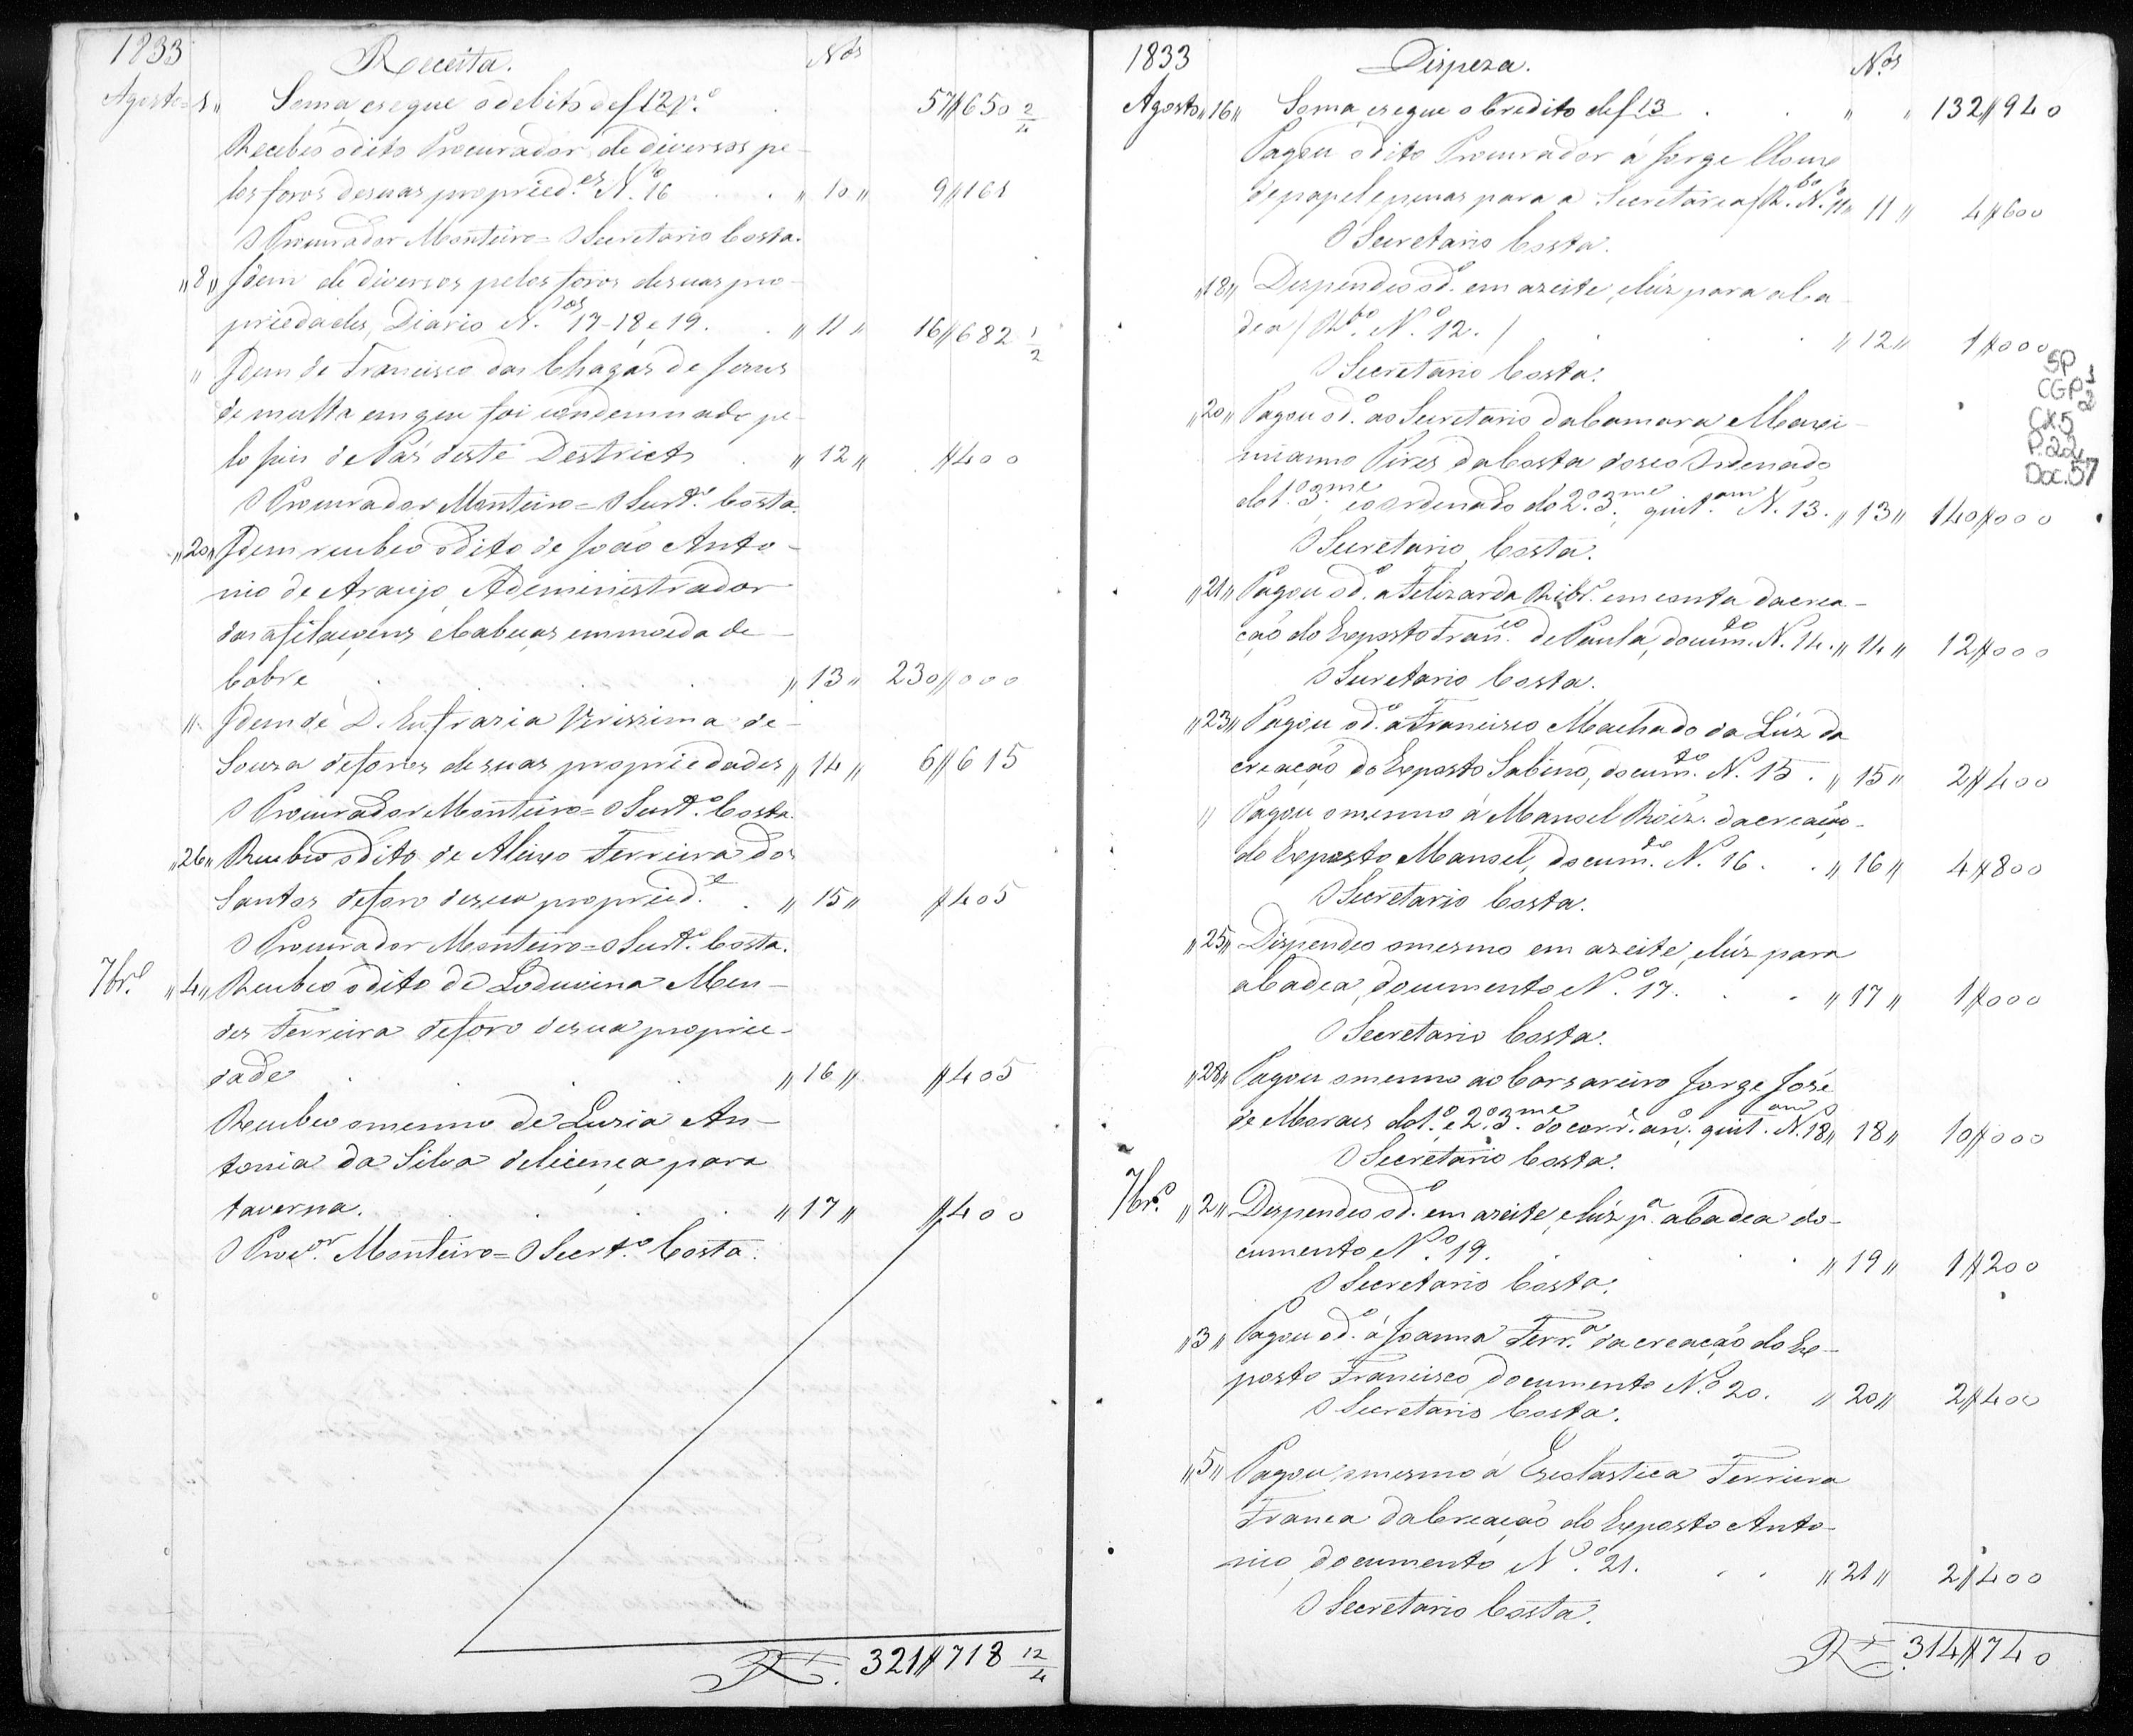 1833 Receita. Nos
Agosto 1 Soma, e segue o debito de f 12 v.o 57//650 2/4
Recebeo o dito Procurador, de diversos pe-
los foros de suas propried.es N.o 16 " 10 " 9//161
O Procurador Monteiro = O Secretario Costa.
" 8 " Idem de diversos pelos foros de suas pro-
priedades, Diario N.os 17-18 e 19. " 11 " 16//682 1/2
" Idem de Francisco das Chagas de Jesus
de multa em que foi condemnado pe-
lo Juis de Pás deste Destricto " 12 " //400
O Procurador Monteiro = O Secrt.o Costa.
" 20 " Idem recebeo o dito de João Anto-
nio de Araujo,Adeministrador
das afilaçoens e Cabeças em moeda de
Cobre " 13 " 230//000
" Idem de D. Eufrazia Verissima de
Souza de foros de suas propriedades " 14 " 6//615
O Procurador Monteiro = O Secrt.o Costa.
" 26 " Recebeo o dito de Aleixo Ferreira dos
Santos de foro de sua propried.e " 15 " //405
O Procurador Monteiro = O Secrt.o Costa.
7br.o " 4 " Recebeo o dito de Loduvina Men-
des Ferreira de foro de sua proprie-
dade " 16 " //405
Recebeo o mesmo de Luzia An-
tonia da Silva de licença para
taverna. " 17 " //400
O Proc.or Monteiro = O Secrt.o Costa.
R.s 321//718 12/4
1833 Dispeza. N.os
Agosto " 16 " Soma, e segue o Credito de f 13 " " 132//940
Pagou o dito Procurador á Jorge
de papel e penas para a Secretaria (R.bo N.o 11 " 11 " 4//600
O Secretario Costa.
" 18 " Despendeo o d.o em azeite, e lúz para a Ca-
dea (R.bo N.o 12.) " 12 " 1//000
O Secretario Costa.
" 20 " Pagou o d.o ao Secretario da Camara Maxi-
mianno Pires da Costa do seo Ordenado
do 1.o 3.me e o ordenado do 2.o 3.me, quit.am N. 13. " 13 " 140//000
O Secretario Costa.
" 21 " Pagou o d.o a Felizarda Ribr.o em conta da crea-
ção do Exposto Fran.co de Paula, docum.to N. 14. " 14 " 12//000
O Secretario Costa.
" 23 " Pagou o d.o a Francisco Machado da Lúz da
creação do Exposto Sabino, docum.to N. 15. " 15 " 2//400
" Pagou o mesmo á Manoel Roiz. da creação
do Exposto Manoel, docum.to N. 16. " 16 " 4//800
O Secretario Costa.
" 25 " Dispendeo o mesmo em azeite, e lúz para
a Cadea, documento N.o 17. " 17 " 1//000
O Secretario Costa.
" 28 " Pagou o mesmo ao Carsareiro Jorge José
de Moraes do 1.o e 2.o 3.me do corr.e an.o, quit.am N.o 18 " 18 " 10//000
O Secretario Costa.
7br.o " 2 " Dispendeo o d.o em azeite, e lúz p.a a Cadea do-
cumento N.o 19. " 19 " 1//200
O Secretario Costa.
" 3 " Pagou o d.o á Joanna Ferr.a da creação do Ex-
posto Francisco, documento N.o 20. " 20 " 2//400
O Secretario Costa.
" 5 " Pagou o mesmo á Escolastica Ferreira
Franca da Creação do Exposto Anto-
nio, documento N.o 21. " 21 " 2//400
O Secretario Costa.
R.s 314//740
SP
CGP 1
2
CX.5
P.22
Doc.57